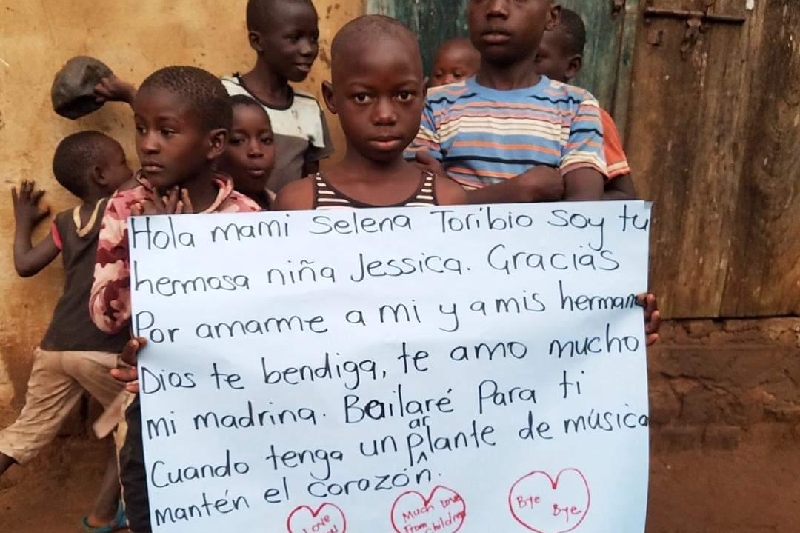 Hola mami Selena Toribio soy tu
hermosa niña Jessica. Gracias
Por amarme a mi y a mis herman
Dios te bendiga, te amo mucho
mi madrina. Bailaré Para ti
ar
Cuando tenga un Plante de música
mantén el corazón.
Love
Much Love
From
Children
Bye
Bye